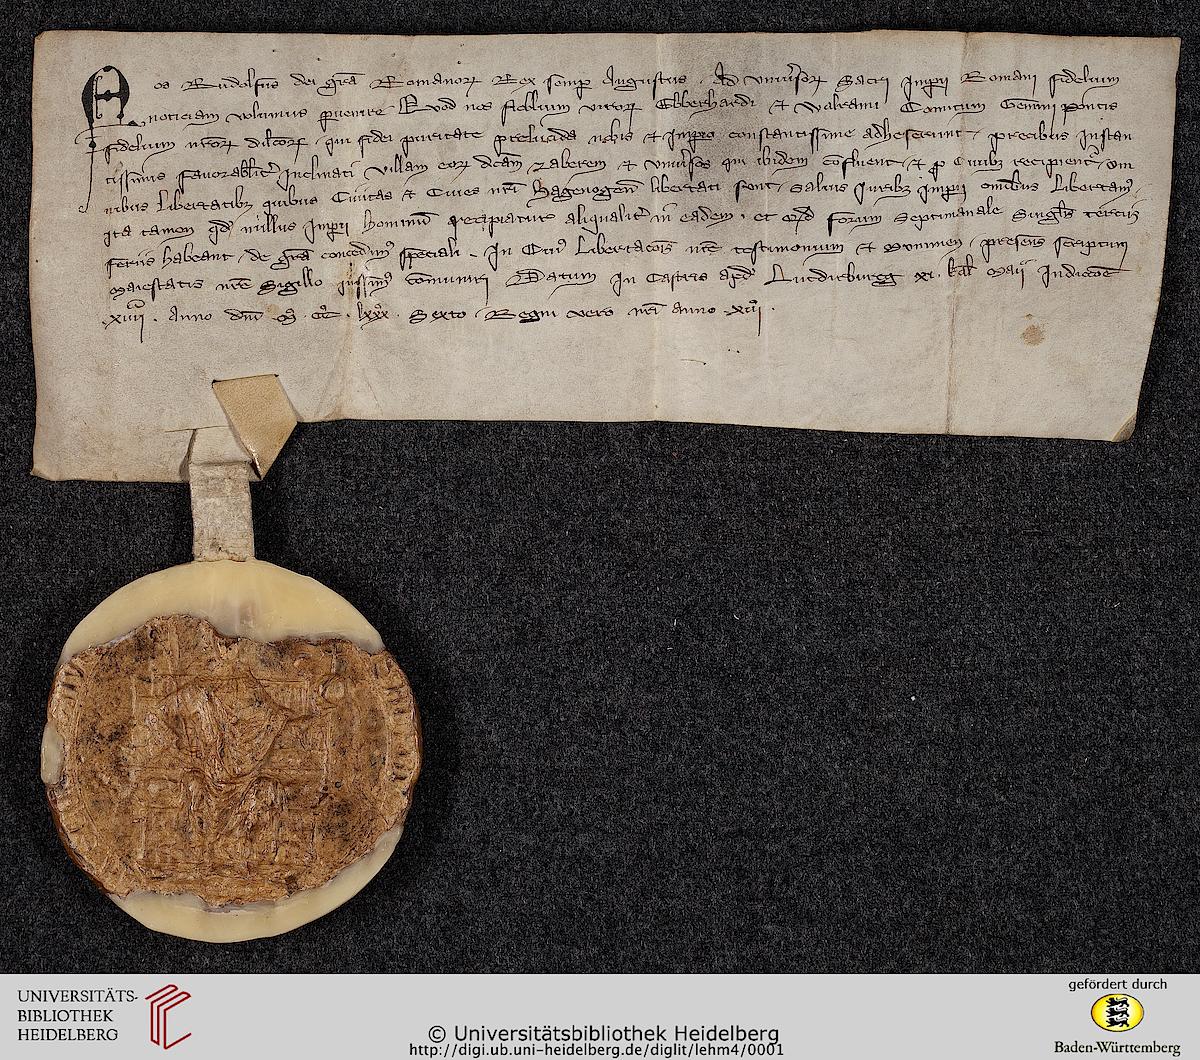 Nos Rudolfus dei gra Romanor Rex semp Augustus . Ad univsor Sacri Impii Romani fidelium
noticiam volumus pvenire . Quod nos nobilium viror Ebberhardi et Walrami Comitum Gemini pontis
fidelium nror dilcor . qui fidei puritate prelucida nobis et Impio constantissime adheserunt . precibus instan
tissimis favorabilit inclinati villam eor dcam Zaberem et univsos qui ibidem confluent et p Civibz recipient . om
nibus libertatibz quibus Civitas et Cives nri Hagenogen libertati sont . salvis iuribz Impii omibus libertam .
ita tamen qd nullus Impii hominum recipiatur aliqualit in eadem . et qd forum septimanale singlis terciis
feriis habeant . de gra concedim speciali . In Cui libertacois nre testimonium et munimen . presens scriptum
Maiestatis nre Sigillo iussim comuniri Datum in Castris apd Lutdirburgg xi . kal Maii Indictoe
xiiii . Anno dni . m . cc . lxxx . Sexto Regni vero nri anno . xiii .
UNIVERSITÄTS-
BIBLIOTHEK
HEIDELBERG
© Universitätsbibliothek Heidelberg
http://digi.ub.uni-heidelberg.de/diglit/lehm4/0001
gefördert durch
Baden-Württemberg